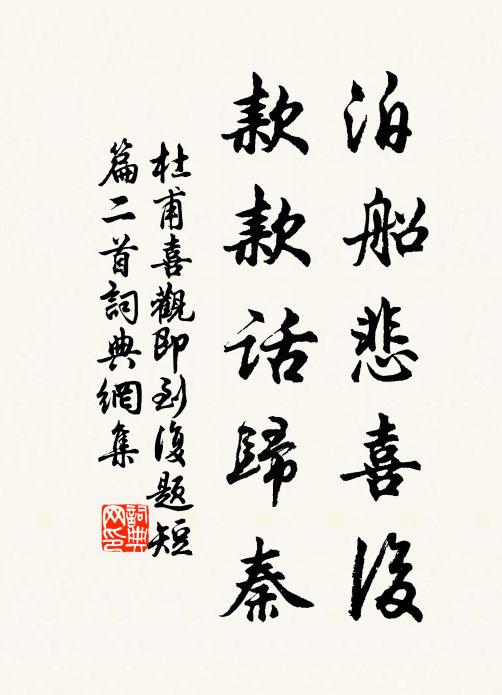 泊船悲喜後
款款话歸秦
杜甫喜觀即到復題短
篇二首詞典網集
詞典网印